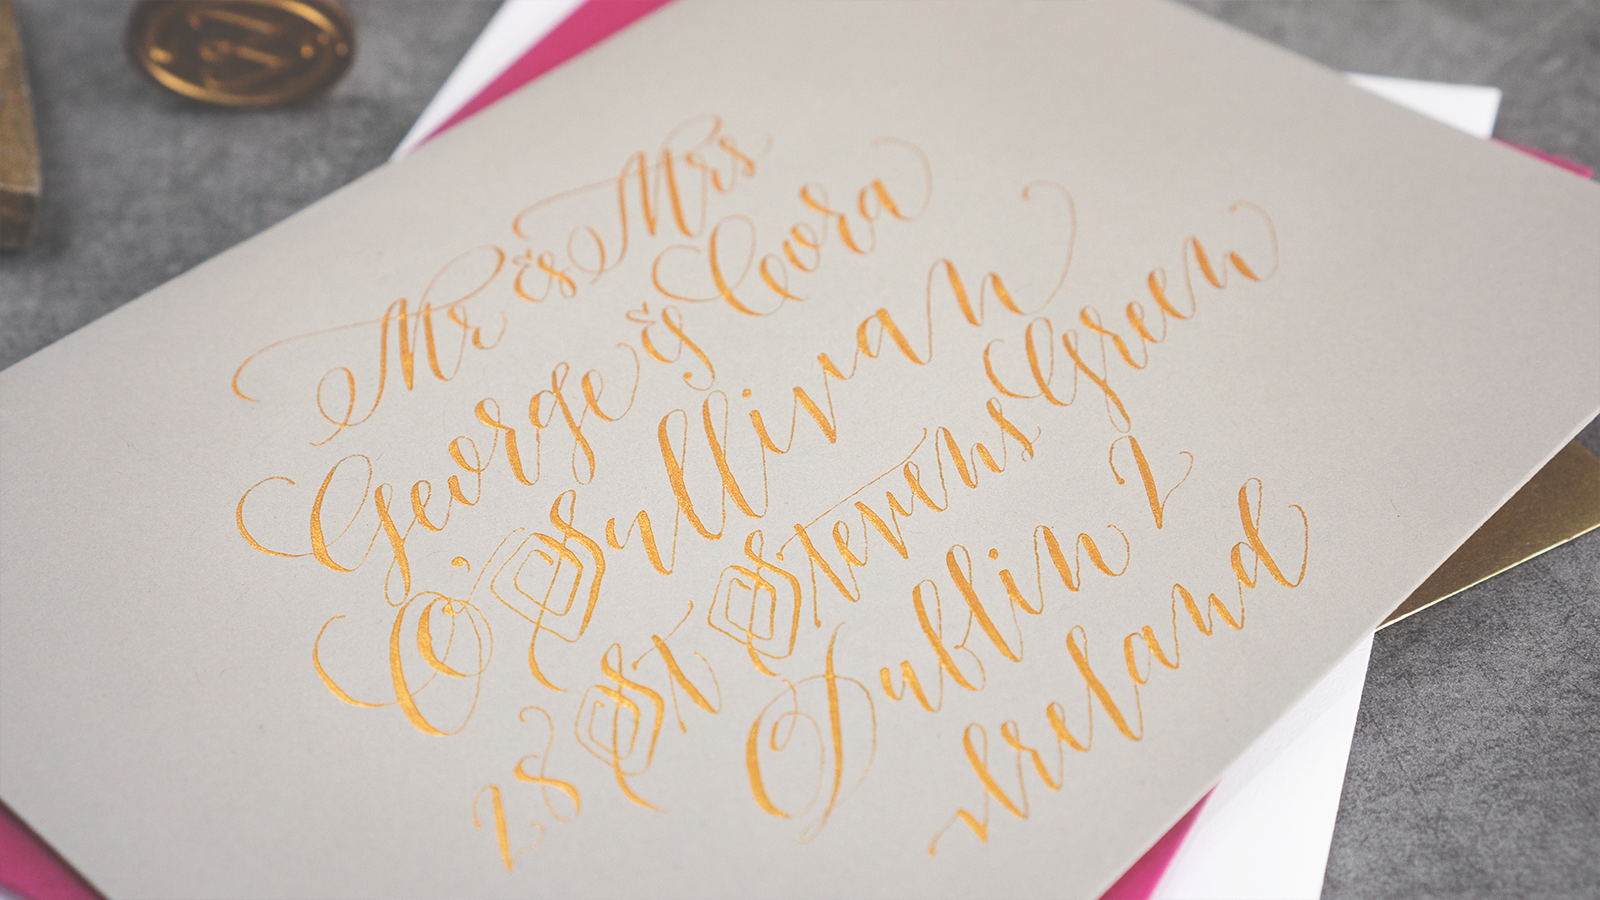 Mr & Mrs
George & Ceora
O'Sullivan
28 St Stevens Green
Dublin 2
Ireland